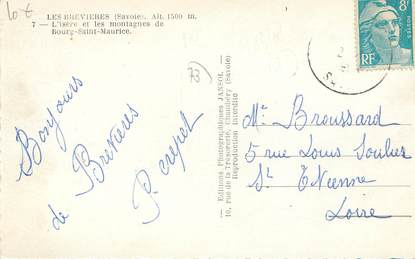 10 €
LES BREVIERES (Savoie). Alt. 1500 m.
7 - L'Isère et les montagnes de
Bourg-Saint-Maurice.
73
8F
RF
Bonjours
de Breviers
P. crepet
Editions Photographiques JANSOL
10, rue de la Trésorerie, Chambéry (Savoie)
Reproduction Interdite
Mr. Broussard
5 rue Louis Soulier
St Etienne
Loire